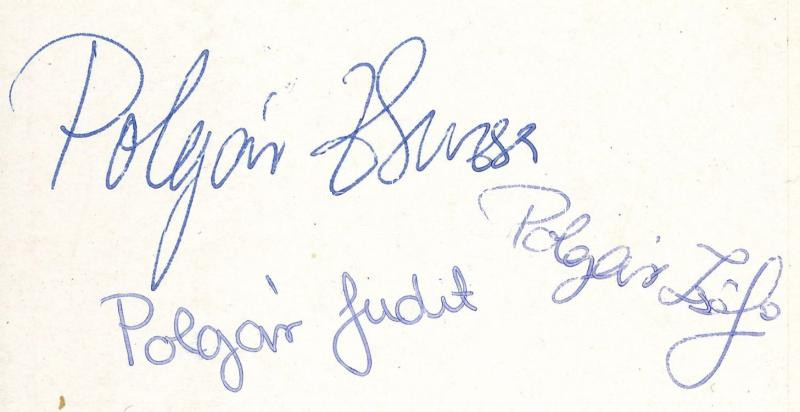 Polgár Zsuzsa
Polgár Zsófi
Polgár Judit